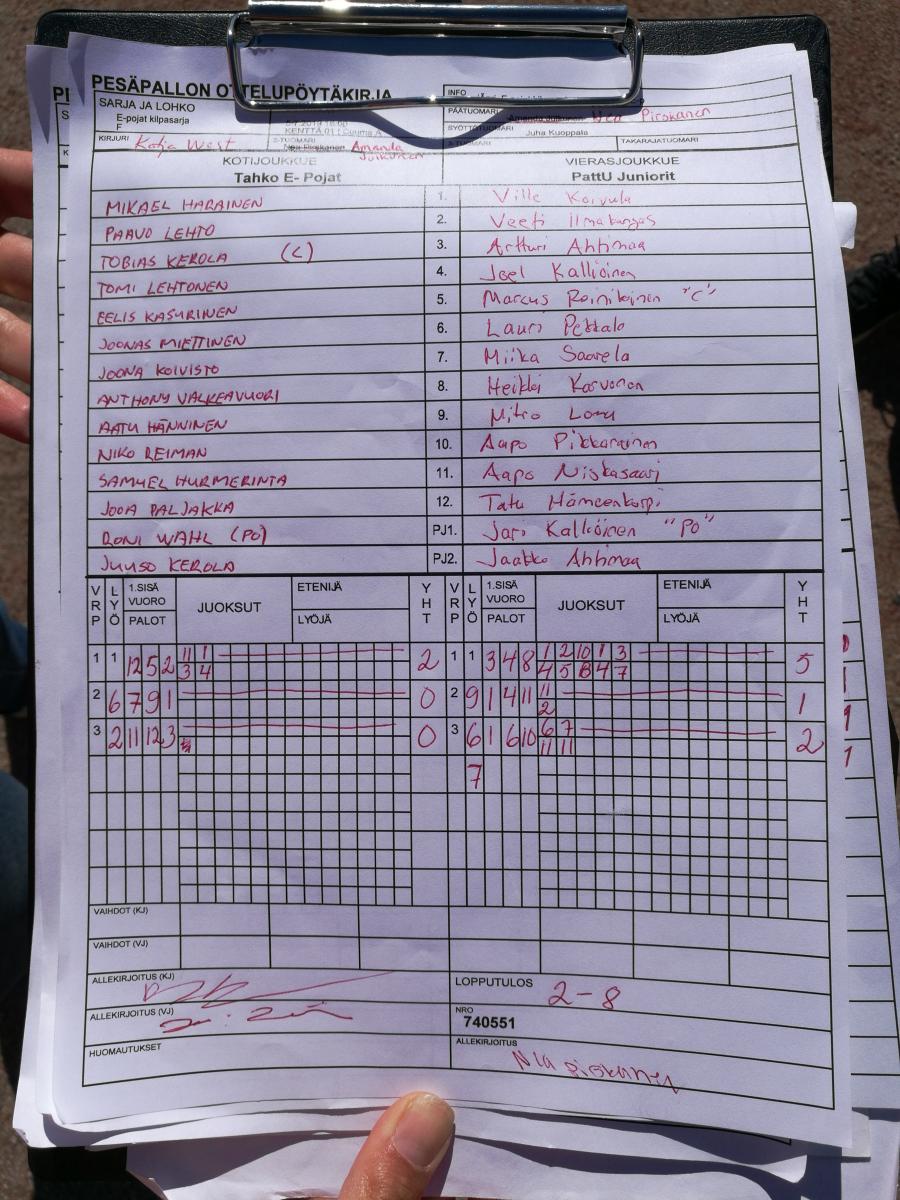 PESÄPALLON OTTELUPÖYTÄKIRJA
INFO
SARJA JA LOHKO
E-pojat kilpasarja
F
KENTTÄ 01
PÄÄTUOMARI
Nea Pirskanen
SYÖTTÖTUOMARI
Juha Kuoppala
KIRJURI Katja West
2-TUOMARI
Amanda
Julkunen
3-TUOMARI
TAKARAJATUOMARI
KOTIJOUKKUE
Tahko E- Pojat
VIERASJOUKKUE
PattU Juniorit
MIKAEL HARAINEN 1. Ville Koivula
PAAVO LEHTO 2. Veeti Ilmakangas
TOBIAS KEROLA (C) 3. Artturi Ahtimaa
TOMI LEHTONEN 4. Joel Kalliöinen
EELIS KASURINEN 5. Marcus Reinikainen "C"
JOONAS MIETTINEN 6. Lauri Pekkala
JOONA KOIVISTO 7. Miika Saarela
ANTHONY VALKEAVUORI 8. Heikki Karvonen
AATU HÄNNINEN 9. Mitro
NIKO REIMAN 10. Aapo Pikkarainen
SAMUEL HURMERINTA 11. Aapo Niskasaari
JOOA PALJAKKA 12. Tatu Hämeenkorpi
RONI WAHL (PO) PJ1. Jari Kalliöinen "PO"
JUUSO KEROLA PJ2. Jaakko Ahtimaa
VRP LYÖ 1.SISÄ VUORO PALOT JUOKSUT ETENIJÄ LYÖJÄ YHT VRP LYÖ 1.SISÄ VUORO PALOT JUOKSUT ETENIJÄ LYÖJÄ YHT
1 1 12 5 2 11 1 2 1 1 3 4 8 1 2 10 1 3 5
3 4 4 5 8 4 7
2 6 7 9 1 0 2 9 1 4 11 11 1
2
3 2 11 12 3 0 3 6 1 6 10 6 7 2
11 11
7
VAIHDOT (KJ)
VAIHDOT (VJ)
ALLEKIRJOITUS (KJ)
LOPPUTULOS 2-8
ALLEKIRJOITUS (VJ)
NRO
740551
HUOMAUTUKSET
ALLEKIRJOITUS
Nea Piskanen